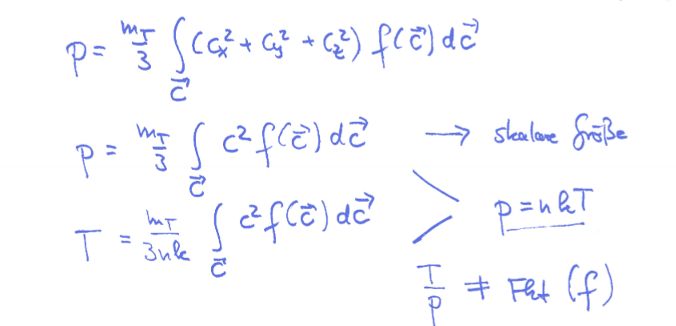 p = m_T/3 ∫_c⃗ (c_x² + c_y² + c_z²) f(c⃗) dc⃗
p = m_T/3 ∫_c⃗ c² f(c⃗) dc⃗ → skalare Größe
T = m_T/3nk ∫_c⃗ c² f(c⃗) dc⃗
p = nkT
T/p ≠ Fkt (f)